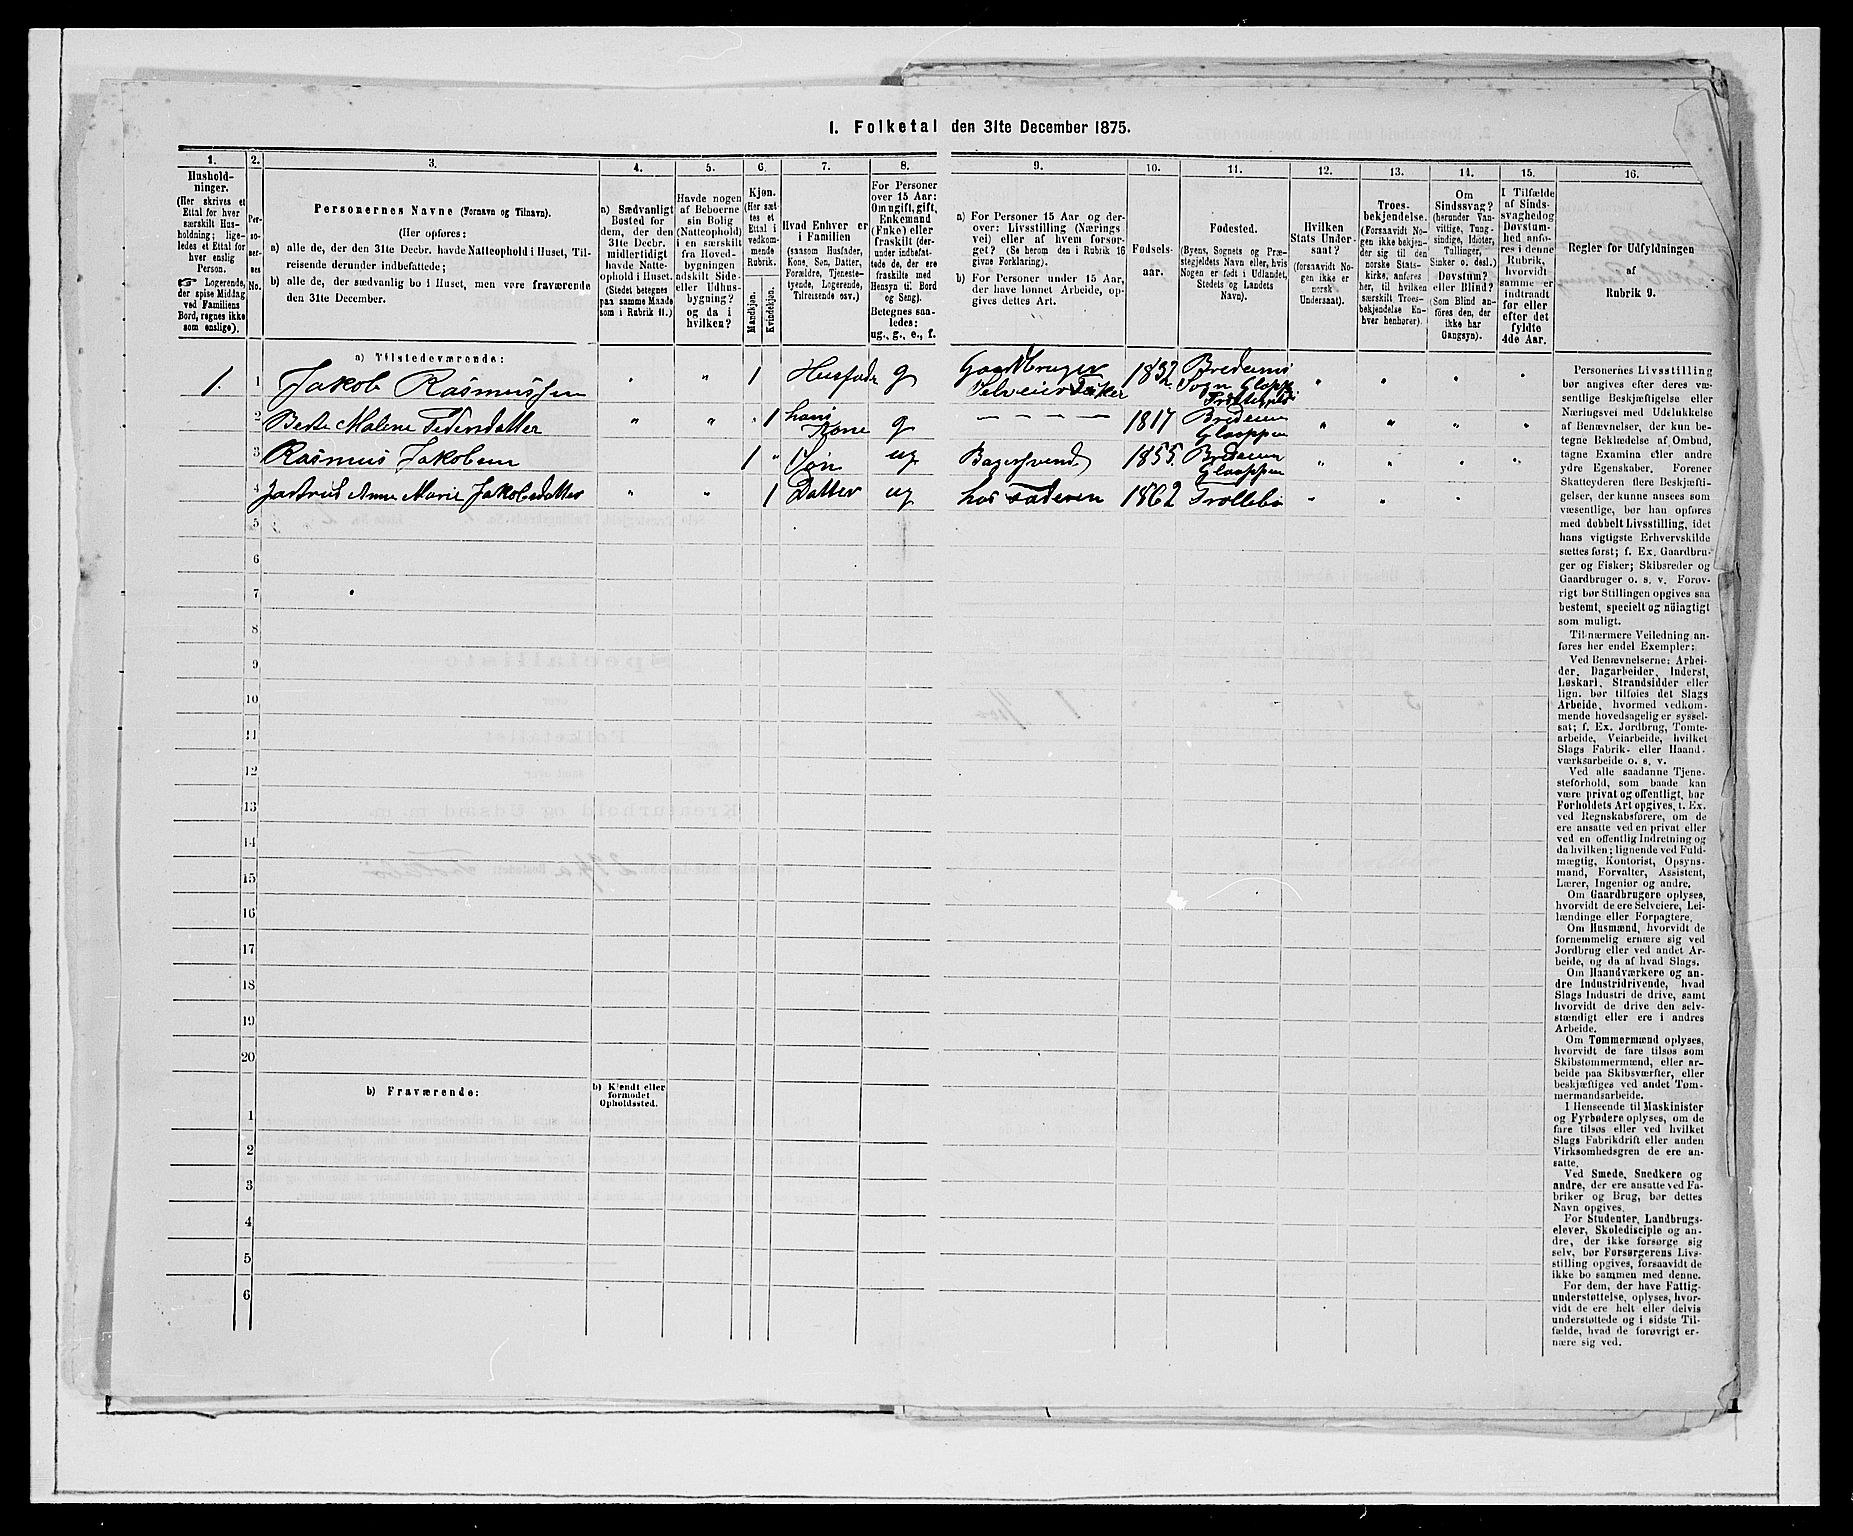 I. Folketal den 31te December 1875.
1. 2. 3. 4. 5. 6. 7. 8. 9. 10. 11. 12. 13. 14. 15. 16.
Hushold-
ninger.
(Her skrives et
Ettal for hver
særskilt Hus-
holdning; lige-
ledes et Ettal for
hver enslig
Person.
☞ Logerende,
der spise Middag
ved Familiens
Bord, regnes ikke
som enslige).
Per-
so-
ner-
nes
No.
Personernes Navne (Fornavn og Tilnavn).
(Her opføres:
a) alle de, der den 31te Decbr. havde Natteophold i Huset, Til-
reisende derunder indbefattede;
b) alle de, der sædvanlig bo i Huset, men vare fraværende
den 31te December.
a) Sædvanligt
Bosted for
dem, der den
31te Decbr.
midlertidigt
havde Natte-
ophold i Huset.
(Stedet betegnes
paa samme Maade
som i Rubrik 11.)
Havde nogen
af Beboerne
sin Bolig
(Natteophold)
i en særskilt
fra Hoved-
bygningen
adskilt Side-
eller Udhus-
bygning?
og da i
hvilken?
Kjøn.
(Her sæt-
tes et
Ettal i
vedkom-
mende
Rubrik.
Mandkjøn.
Kvindekjøn.
Hvad Enhver er
i Familien
(saasom Husfader,
Kone, Søn, Datter,
Forældre, Tjeneste-
tyende, Logerende,
Tilreisende osv.)
For Personer
over 15 Aar:
Om ugift, gift,
Enkemand
(Enke) eller
fraskilt (der-
under indbefat-
tede de, der ere
fraskilte med
Hensyn til Bord
og Seng).
Betegnes saa-
ledes:
ug., g., e., f.
a) For Personer 15 Aar og der-
over: Livsstilling (Nærings-
vei) eller af hvem forsør-
get? (Se herom den i Rubrik 16
givne Forklaring).
b) For Personer under 15 Aar,
der have lønnet Arbeide, op-
gives dettes Art.
Fødsels-
aar.
Fødested.
(Byens, Sognets og Præ-
stegjeldets Navn eller, hvis
Nogen er født i Udlandet,
Stedets og Landets
Navn).
Hvilken
Stats Under-
saat?
(forsaavidt No-
gen ikke er
norsk
Undersaat).
Troes-
bekjendelse.
(Forsaavidt No-
gen ikke bekjen-
der sig til den
norske Stats-
kirke, anføres
her, til hvilken
særskilt Troes-
bekjendelse En-
hver henhører).
Om
Sindssvag?
(herunder Van-
vittige, Tung-
sindige, Idioter,
Tullinger,
Sinker o. desl.)
Døvstum?
eller Blind?
(Som Blind an-
føres den, der
ikke har
Gangsyn).
I Tilfælde
af Sinds-
svaghed og
Døvstum-
hed anfø-
res i denne
Rubrik,
hvorvidt
samme er
indtraadt
før eller
efter det
fyldte
4de Aar.
Regler for Udfyldningen
af
Rubrik 9.
a) Tilstedeværende:
1. 1 Jakob Rasmussen " " 1 Husfader g Gaardbruger
Selveier 1832 Bredeims
Sogn Gloppen
2 Berte Malene Pedersdatter " " " 1 hans
Kone g — — — — 1817 Bredeim
Gloppen " " " "
3 Rasmus Jakobsen 1 " Søn ug Bagersvend 1855. Bredeim
Gloppen " " " "
4 Anne Marie Jakobsdatter " " 1 Datter ug hos Faderen 1862 Trollebø " " " "
5
6
7
8
9
10
11
12
13
14
15
16
17
18
19
20
b) Fraværende:
b) Kjendt eller
formodet
Opholdssted.
1
2
3
4
5
6
Personernes Livsstilling
bør angives efter deres væ-
sentlige Beskjæftigelse eller
Næringsvei med Udelukkelse
af Benævnelser, der kun be-
tegne Beklædelse af Ombud,
tagne Examina eller andre
ydre Egenskaber. Forener
Skatteyderen flere Beskjæfti-
gelser, der kunne ansees som
væsentlige, bør han opføres
med dobbelt Livsstilling, idet
hans vigtigste Erhvervskilde
sættes først; f. Ex. Gaardbru-
ger og Fisker; Skibsreder og
Gaardbruger o. s. v. Forøv-
rigt bør Stillingen opgives saa
bestemt, specielt og nøiagtigt
som muligt.
Til nærmere Veiledning an-
føres her endel Exempler:
Ved Benævnelserne: Arbei-
der, Dagarbeider, Inderst,
Løskarl, Strandsidder eller
lign. bør tilføies det Slags
Arbeide, hvormed vedkom-
mende hovedsagelig er syssel-
sat; f. Ex. Jordbrug, Tomte-
arbeide, Veiarbeide, hvilket
Slags Fabrik- eller Haand-
værksarbeide o. s. v.
Ved alle saadanne Tjene-
steforhold, som baade kan
være privat og offentligt, bør
Forholdets Art opgives, t. Ex.
ved Regnskabsførere, om de
ere ansatte ved en privat eller
ved en offentlig Indretning og
da hvilken; lignende ved Fuld-
mægtig, Kontorist, Opsyns-
mand, Forvalter, Assistent,
Lærer, Ingeniør og andre.
Om Gaardbrugere oplyses,
hvorvidt de ere Selveiere, Lei-
lændinge eller Forpagtere.
Om Husmænd, hvorvidt de
fornemmelig ernære sig ved
Jordbrug eller ved andet Ar-
beide, og da af hvad Slags.
Om Haandværkere og an-
dre Industridrivende, hvad
Slags Industri de drive, samt
hvorvidt de drive den selv-
stændigt eller ere i andres
Arbeide.
Om Tømmermænd oplyses,
hvorvidt de fare tilsøs som
Skibstømmermænd, eller ar-
beide paa Skibsværfter, eller
beskjæftiges ved andet Tøm-
mermandsarbeide.
I Henseende til Maskinister
og Fyrbødere oplyses, om de
fare tilsøs eller ved hvilket
Slags Fabrikdrift eller anden
Virksomhedsgren de ere an-
satte.
Ved Smede, Snedkere og
andre, der ere ansatte ved Fa-
briker og Brug, bør dettes
Navn opgives.
For Studenter, Landbrugs-
elever, Skoledisciple og an-
dre, der ikke forsørge sig
selv, bør Forsørgerens Livs-
stilling opgives, forsaavidt de
ikke bo sammen med denne.
For dem, der have Fattig-
understøttelse, oplyses, hvor-
vidt de ere helt eller delvis
understøttede og i sidste Til-
fælde, hvad de forøvrigt er-
nære sig ved.